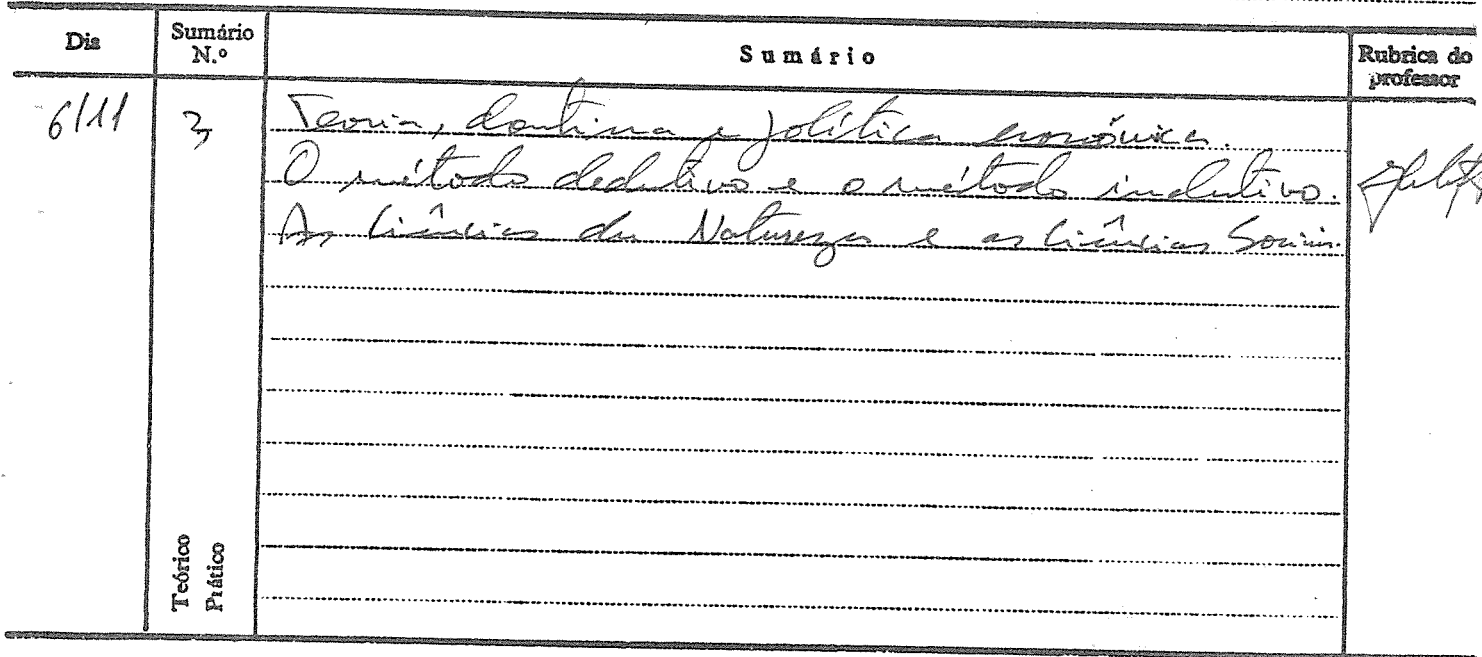 Dia
Sumário N.º
Sumário
Rubrica do professor
6/11
3
Teoria, doutrina e política económica.
O método dedutivo e o método indutivo.
As Ciências da Natureza e as Ciências Sociais.
Teórico
Prático